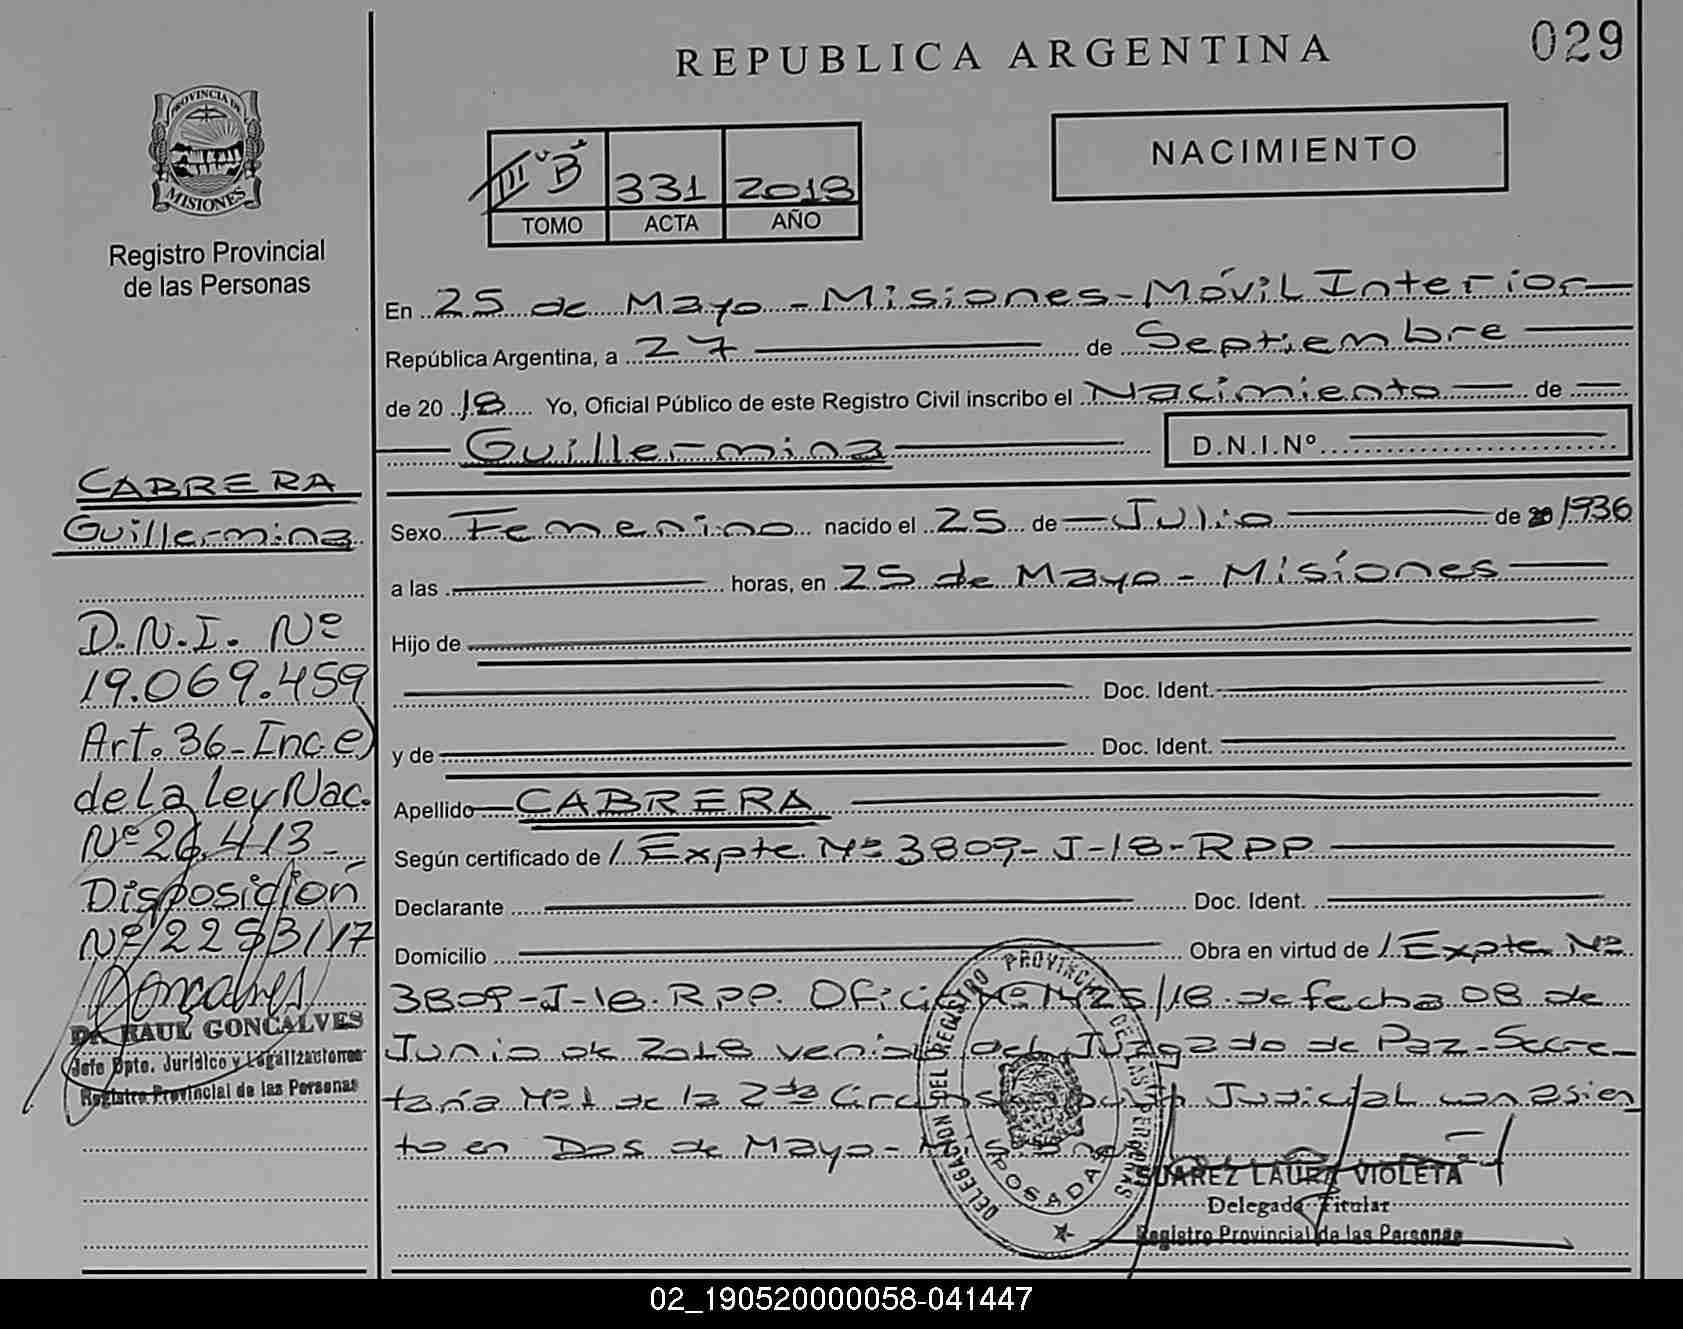 029
REPUBLICA ARGENTINA
NACIMIENTO
PROVINCIA DE
MISIONES
Registro Provincial
de las Personas
III "B" 331 2018
TOMO ACTA AÑO
En 25 de Mayo - Misiones - Móvil Interior
República Argentina, a 27 de Septiembre
de 20 18 Yo, Oficial Público de este Registro Civil inscribo el Nacimiento de
Guillermina D.N.I.Nº
Sexo Femenino nacido el 25 de Julio de 20 1936
a las horas, en 25 de Mayo - Misiones
Hijo de
Doc. Ident.
y de Doc. Ident.
Apellido CABRERA
Según certificado de / Expte. Nº 3809-J-18-RPP
Declarante Doc. Ident.
Domicilio Obra en virtud de / Expte Nº
3809-J-18-RPP. Oficio Nº 1425/18 de fecha 08 de
Junio de 2018 venido del Juzgado de Paz-Secre-
taría Nº1 de la 2da Circunscripción Judicial con asien
to en Dos de Mayo - Misiones
CABRERA
Guillermina
D.N.I. Nº
19.069.459
Art. 36-Inc. e)
de la Ley Nac.
Nº 26.413-
Disposición
Nº 2253/17
Dr. RAUL GONCALVES
Jefe Dpto. Jurídico y Legalizaciones
Registro Provincial de las Personas
DELEGACION DEL REGISTRO PROVINCIAL DE LAS PERSONAS
POSADAS
SUAREZ LAURA VIOLETA
Delegada Titular
Registro Provincial de las Personas
02_190520000058-041447